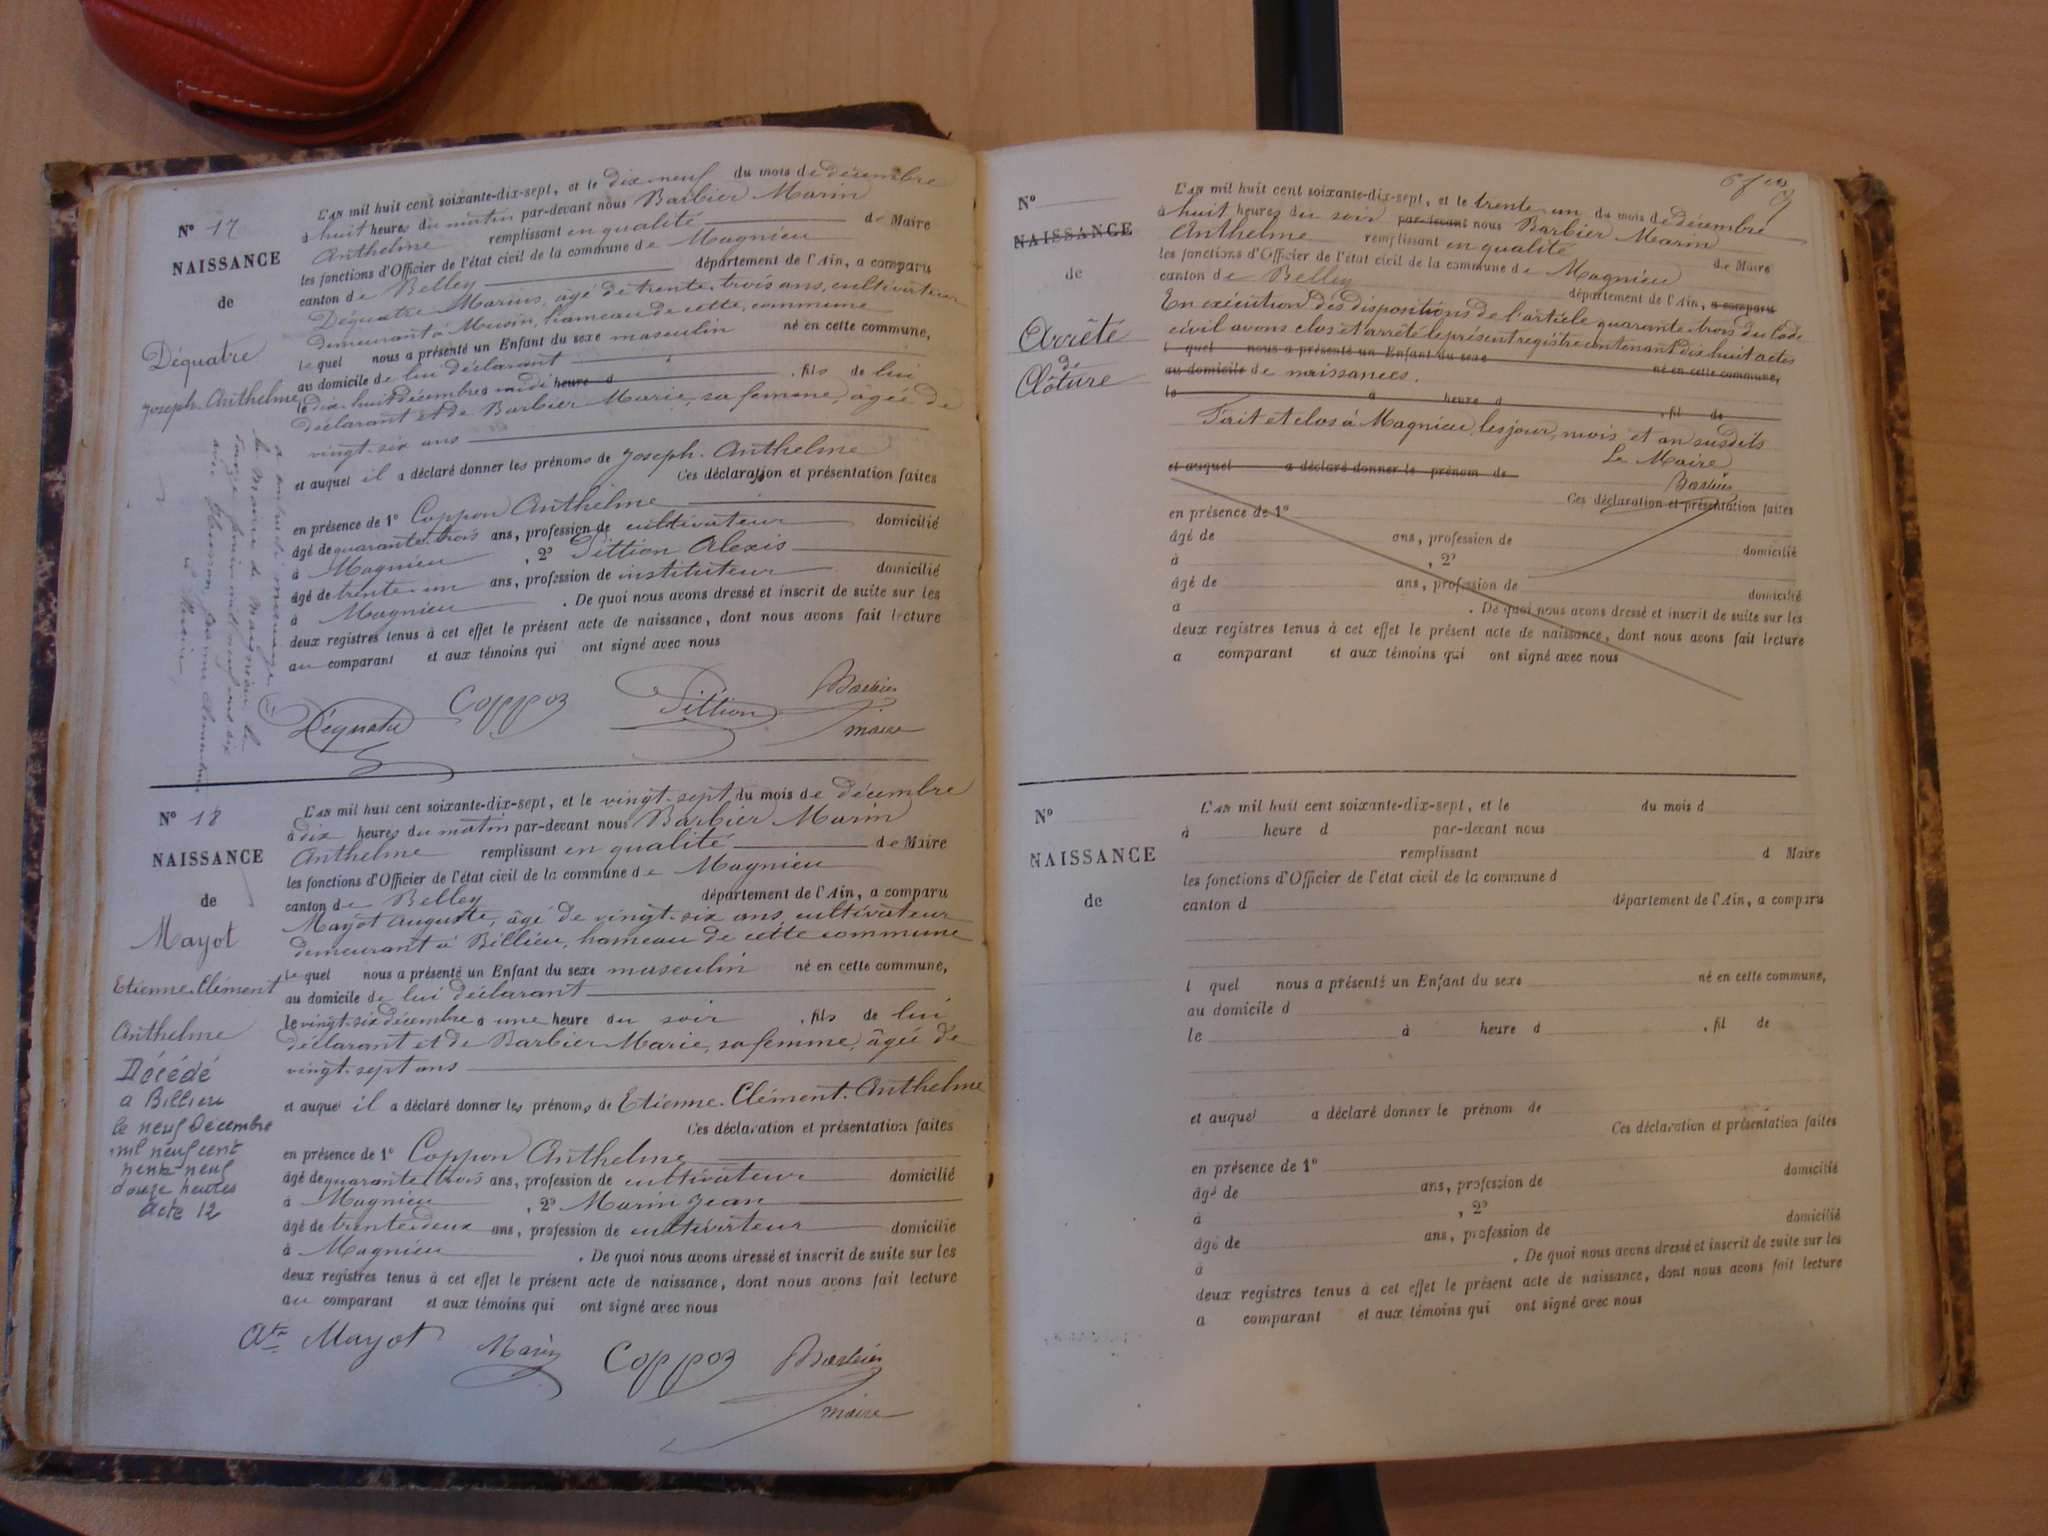 N° 17
NAISSANCE
de
Déquatre
Joseph. Anthelme
L'an mil huit cent soixante-dix-sept, et le dix neuf du mois de décembre
à huit heures du matin par-devant nous Barbier Marin
Anthelme remplissant en qualité de Maire
les fonctions d'Officier de l'état civil de la commune de Magnieu
canton de Belley département de l'Ain, a comparu
Déquatre Marius, âgé de trente-trois ans, cultivateur
demeurant à Musin, hameau de cette commune
le quel nous a présenté un Enfant du sexe masculin né en cette commune,
au domicile de lui déclarant
le dix-huit décembre à midi heure d , fils de lui
déclarant et de Barbier Marie, sa femme, âgée de
vingt-six ans
et auquel il a déclaré donner les prénoms de Joseph. Anthelme
Ces déclaration et présentation faites
en présence de 1° Coppon Anthelme
âgé de quarante-trois ans, profession de cultivateur domicilié
à Magnieu , 2° Pittion Alexis
âgé de trente-un ans, profession de instituteur domicilié
à Magnieu . De quoi nous avons dressé et inscrit de suite sur les
deux registres tenus à cet effet le présent acte de naissance, dont nous avons fait lecture
au comparant et aux témoins qui ont signé avec nous
a contracté mariage
à la Mairie de
le Maire
Déquatre Coppoz Pittion Barbier
maire
N° 18
NAISSANCE
de
Mayot
Etienne. Clément
Anthelme
Décédé
a Billieu
le neuf Décembre
mil neuf cent
trente-neuf
douze heures
acte 12
L'an mil huit cent soixante-dix-sept, et le vingt-sept du mois de décembre
à dix heures du matin par-devant nous Barbier Marin
Anthelme remplissant en qualité de Maire
les fonctions d'Officier de l'état civil de la commune de Magnieu
canton de Belley département de l'Ain, a comparu
Mayot Auguste, âgé de vingt-six ans, cultivateur
demeurant à Billieu, hameau de cette commune
le quel nous a présenté un Enfant du sexe masculin né en cette commune,
au domicile de lui déclarant
le vingt-six décembre à une heure du soir , fils de lui
déclarant et de Barbier Marie, sa femme, âgée de
vingt-sept ans
et auquel il a déclaré donner les prénoms de Etienne. Clément. Anthelme
Ces déclaration et présentation faites
en présence de 1° Coppon Anthelme
âgé de quarante-trois ans, profession de cultivateur domicilié
à Magnieu , 2° Marin Jean
âgé de trente-deux ans, profession de cultivateur domicilié
à Magnieu . De quoi nous avons dressé et inscrit de suite sur les
deux registres tenus à cet effet le présent acte de naissance, dont nous avons fait lecture
au comparant et aux témoins qui ont signé avec nous
Ate Mayot Marin Coppoz Barbier
maire
N°
NAISSANCE
de
Arrêté
de
Clôture
L'an mil huit cent soixante-dix-sept, et le trente-un du mois de décembre
à huit heures du soir par-devant nous Barbier Marin
Anthelme remplissant en qualité de Maire
les fonctions d'Officier de l'état civil de la commune de Magnieu
canton de Belley département de l'Ain, a comparu
En exécution des dispositions de l'article quarante-trois du Code
civil avons clos et arrêté le présent registre contenant dix huit actes
l quel nous a présenté un Enfant du sexe né en cette commune,
au domicile de naissances.
le à heure d , fil de
Fait et clos à Magnieu, les jour, mois et an susdits
Le Maire
et auquel a déclaré donner le prénom de
Barbier
Ces déclaration et présentation faites
en présence de 1°
âgé de ans, profession de domicilié
à , 2°
âgé de ans, profession de domicilié
à . De quoi nous avons dressé et inscrit de suite sur les
deux registres tenus à cet effet le présent acte de naissance, dont nous avons fait lecture
a comparant et aux témoins qui ont signé avec nous
N°
NAISSANCE
de
L'an mil huit cent soixante-dix-sept, et le du mois d
à heure d par-devant nous
remplissant d Maire
les fonctions d'Officier de l'état civil de la commune d
canton d département de l'Ain, a comparu
l quel nous a présenté un Enfant du sexe né en cette commune,
au domicile d
le à heure d , fil de
et auquel a déclaré donner le prénom de
Ces déclaration et présentation faites
en présence de 1° domicilié
âgé de ans, profession de
à , 2° domicilié
âgé de ans, profession de
à . De quoi nous avons dressé et inscrit de suite sur les
deux registres tenus à cet effet le présent acte de naissance, dont nous avons fait lecture
a comparant et aux témoins qui ont signé avec nous